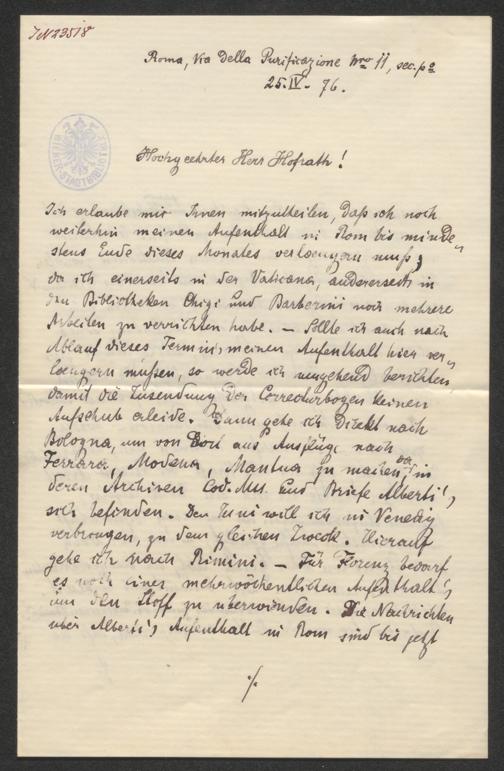 JN 23518
Roma, Via della Purificazione Nro 11, sec. po
25. IV. 76.
WIENER STADTBIBLIOTHEK
Hochgeehrter Herr Hofrath!
Ich erlaube mir Ihnen mitzutheilen, daß ich noch
weiterhin meinen Aufenthalt in Rom bis minde„
stens Ende dieses Monates verlaengern muß,
da ich einerseits in der Vaticana, andererseits in
den Bibliotheken Chigi und Barberini noch mehrere
Arbeiten zu verrichten habe. – Sollte ich auch nach
Ablauf dieses Termins meinen Aufenthalt hier ver„
laengern müßen, so werde ich umgehend berichten
damit die Zusendung der Correcturbogen keinen
Aufschub erleide. Dann gehe ich direkt nach
Bologna, um von dort aus Ausflüge nach
Ferrara, Modena, Mantua zu machen, da in
deren Archiven Cod. Mss. und Briefe Alberti's
sich befinden. Den Juni will ich in Venedig
verbringen, zu dem gleichen Zweck. Hierauf
gehe ich nach Rimini. – Für Florenz bedarf
es noch eines mehrwöchentlichen Aufenthalt's
um den Stoff zu überwinden. Die Nachrichten
über Alberti's Aufenthalt in Rom sind bis jetzt
./.